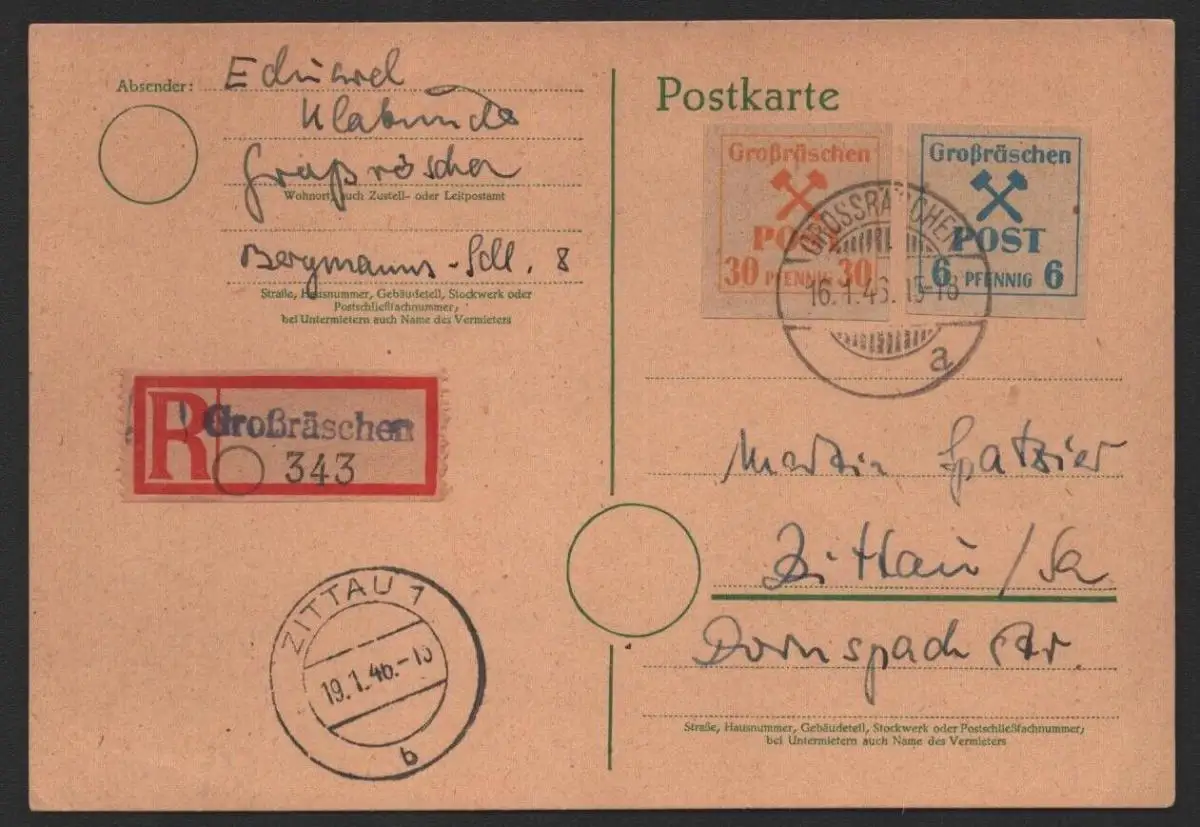 Absender: Eduard
Klabunde
Großräschen
Wohnort, auch Zustell- oder Leitpostamt
Bergmanns-Sdl. 8
Straße, Hausnummer, Gebäudeteil, Stockwerk oder
Postschließfachnummer;
bei Untermietern auch Name des Vermieters
R Großräschen
343
ZITTAU 1
19.1.46.-
b
Postkarte
Großräschen
POST
30 PFENNIG 30
Großräschen
POST
6 PFENNIG 6
GROSSRÄSCHEN
16.1.46.15-18
a
Martin Spatzier
Zittau/Sa
Dornspach Str.
Straße, Hausnummer, Gebäudeteil, Stockwerk oder Postschließfachnummer;
bei Untermietern auch Name des Vermieters